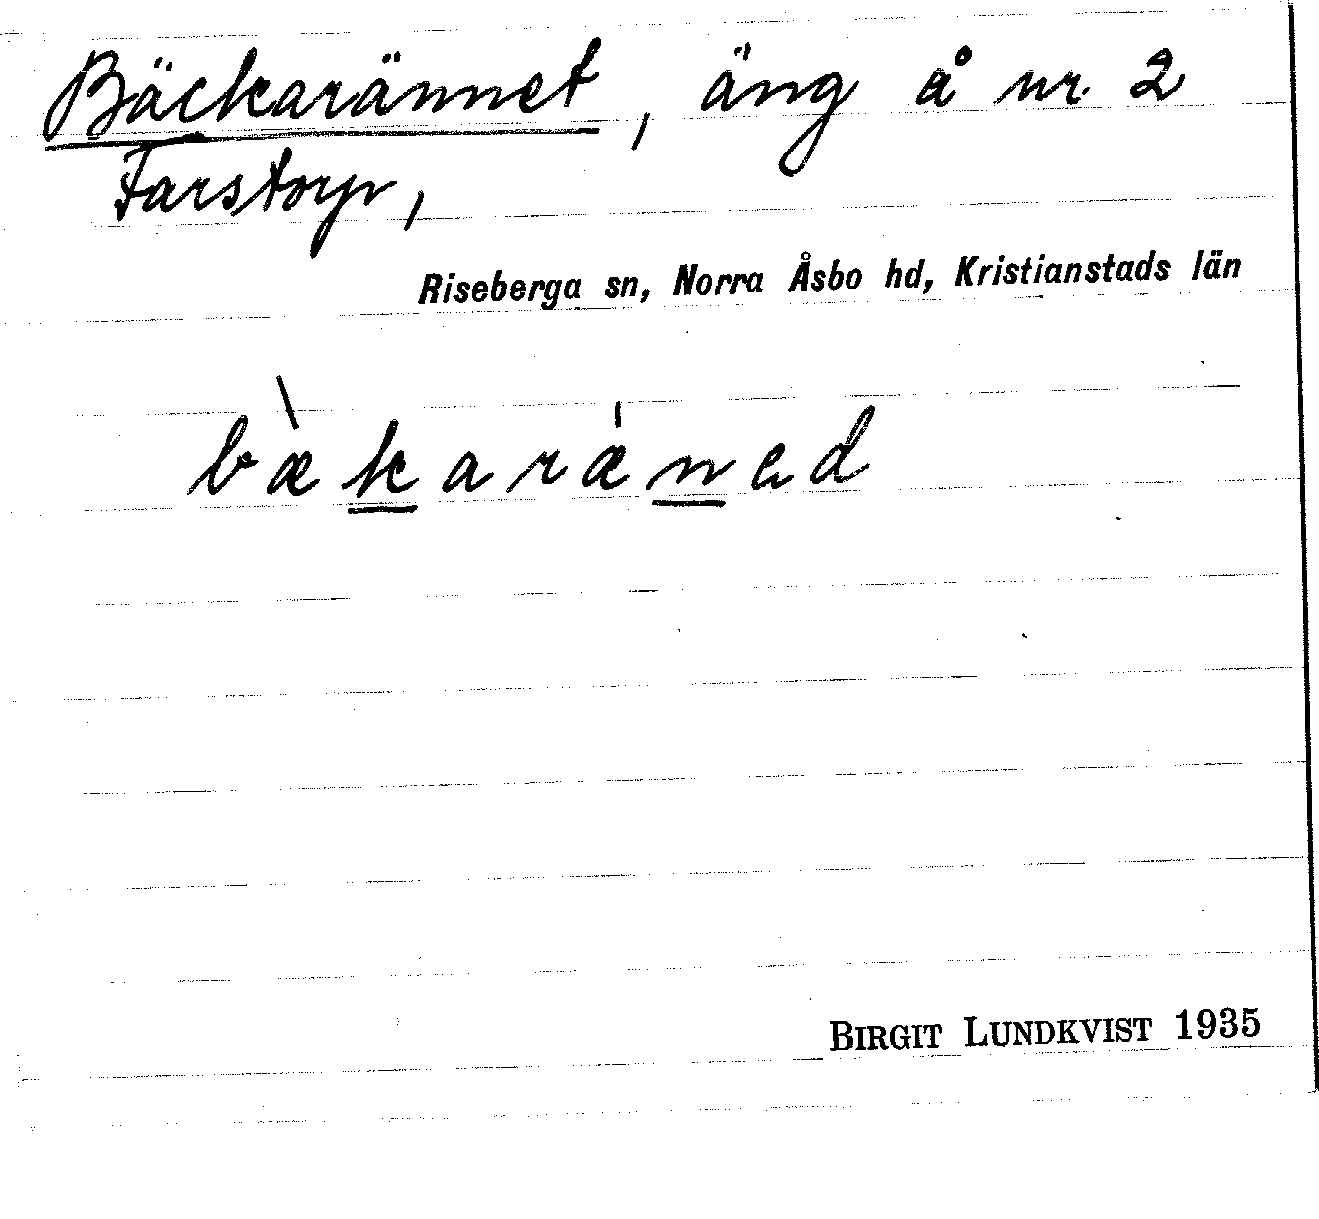 Bäckarännet, äng å nr. 2
Farstorp,
Riseberga sn, Norra Åsbo hd, Kristianstads län
bæ̀karǽnəd
BIRGIT LUNDKVIST 1935